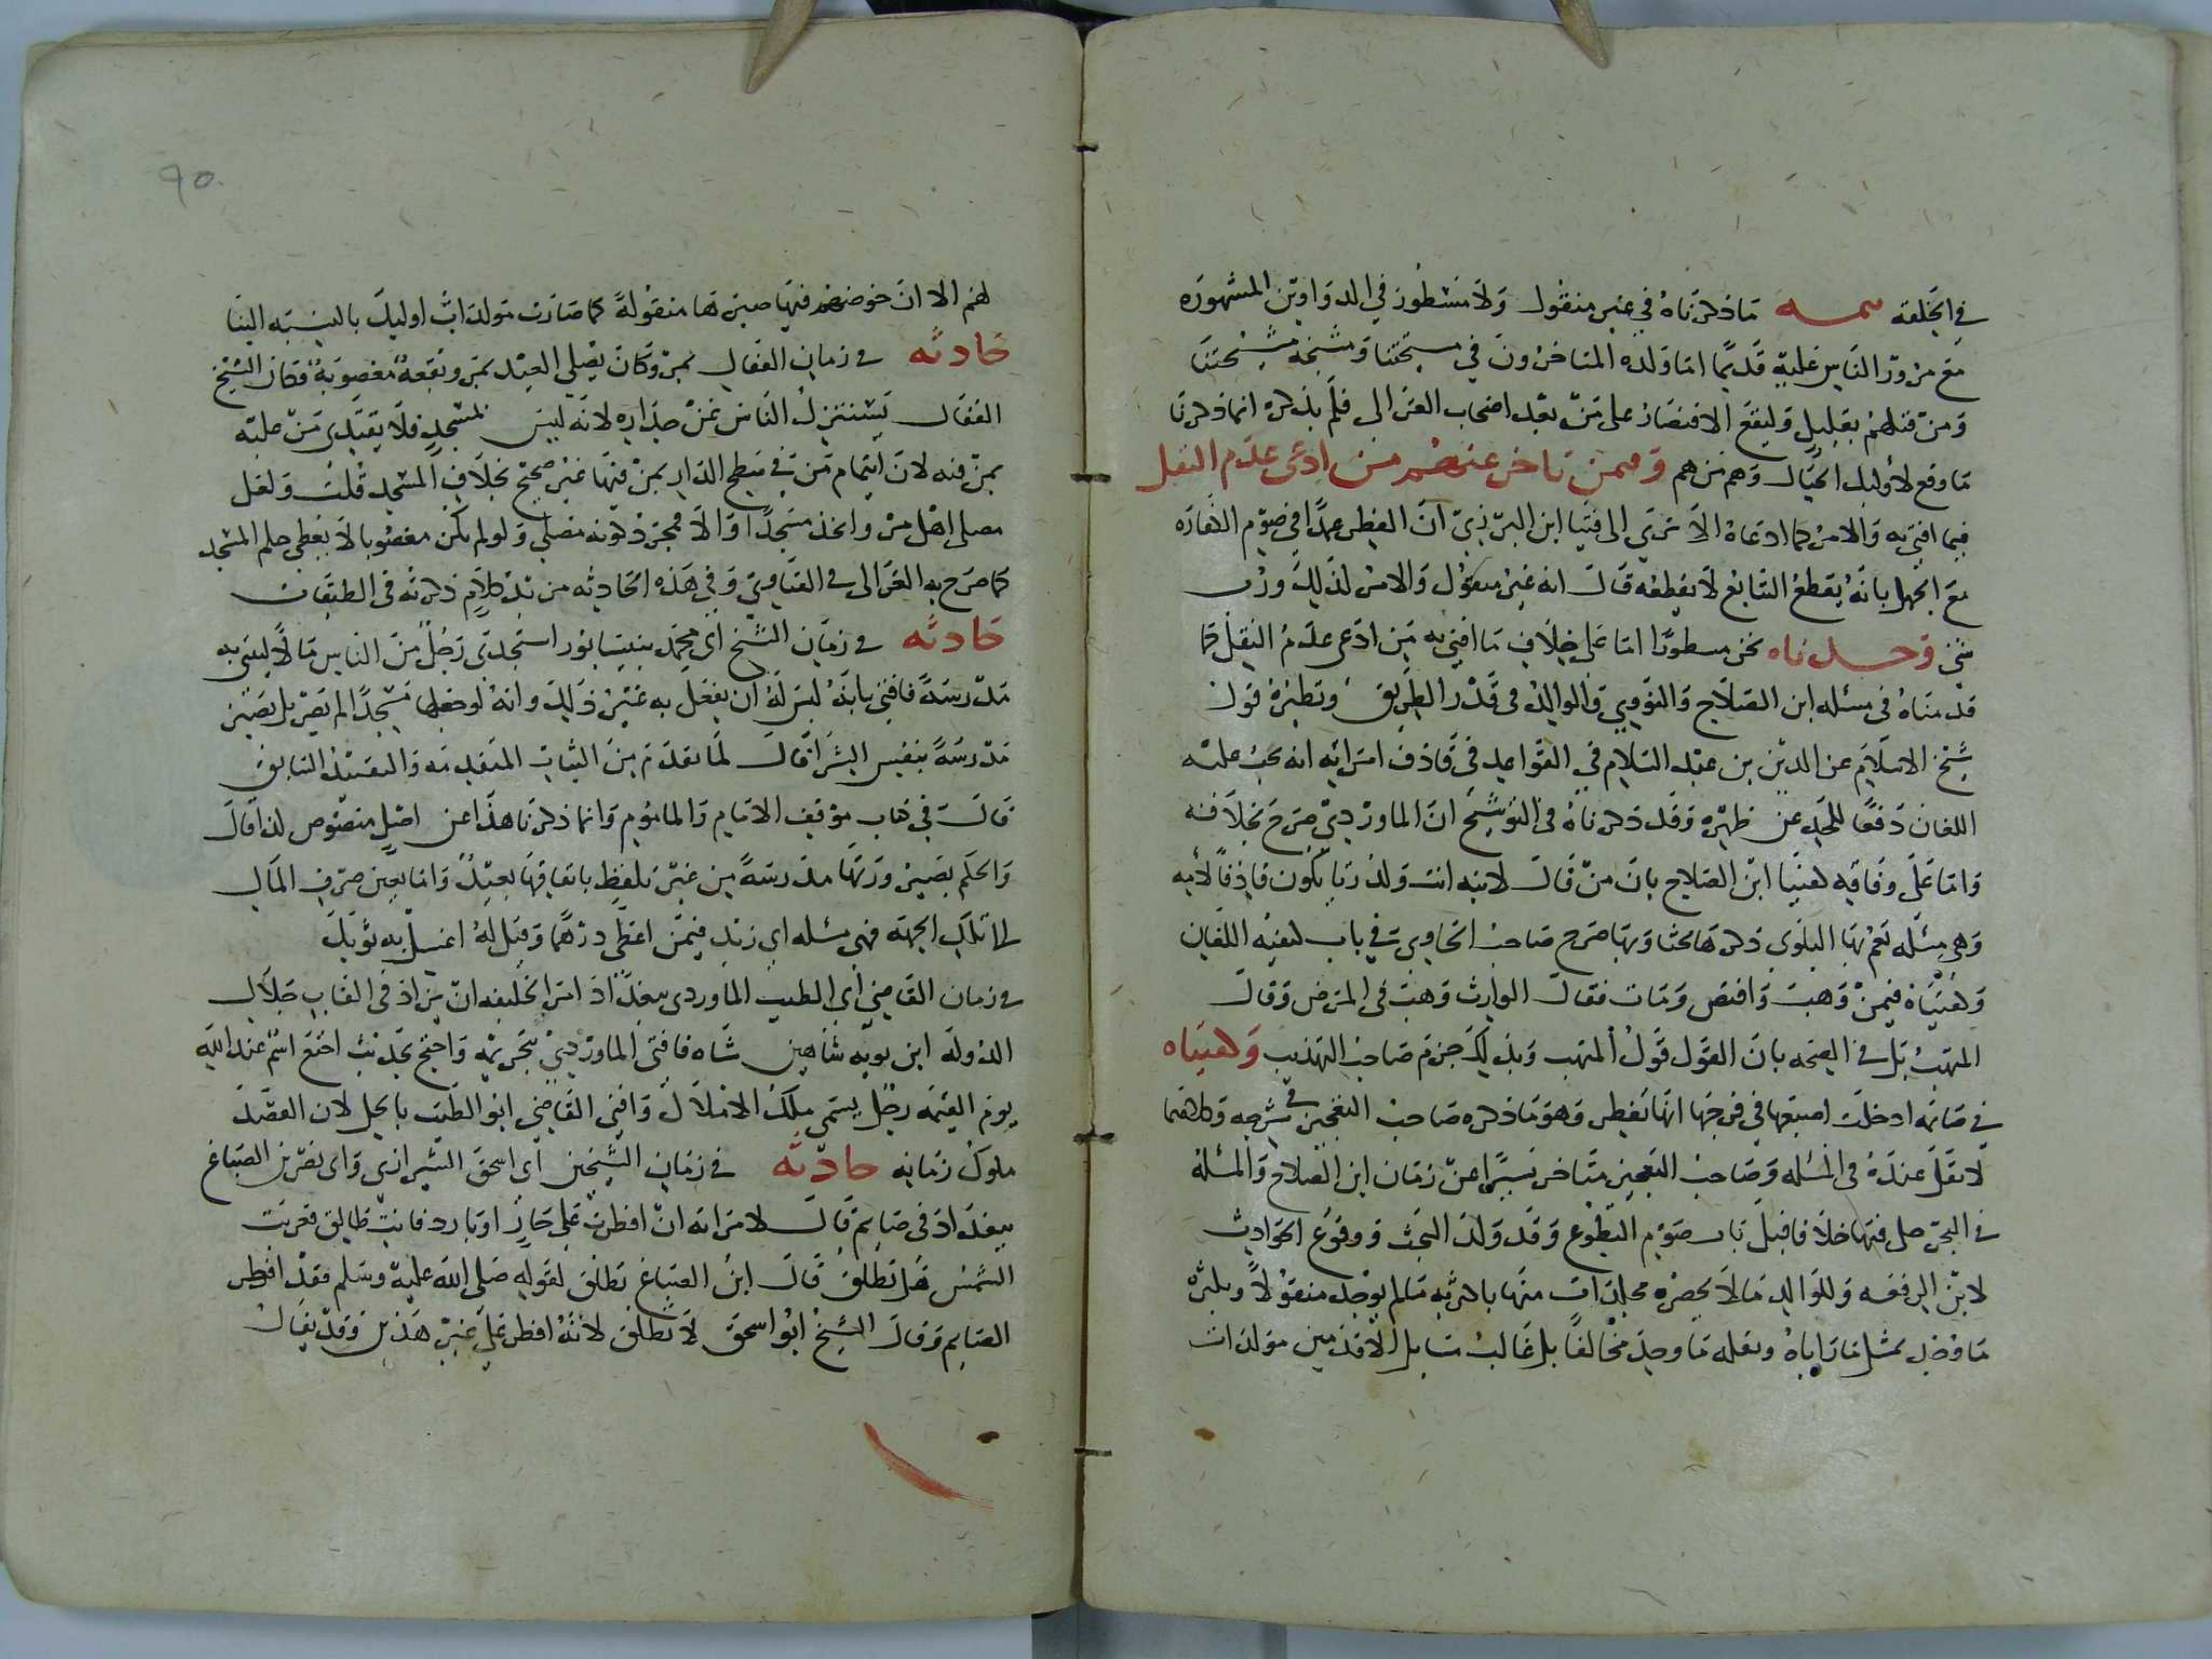 في الجملة تتمة ما ذكرناه في غير منقول ولا مسطور في الدواوين المشهورة
مع مرور الناس عليه قديما اما ولده المتاخرون في مشيختنا ومشيخة مشيختنا
ومن قبلهم بقليل وليقع الاقتصار على من بعد اصحاب الغزالى فلم يذكره انما ذكرنا
ما وقع لاوليك الجبال وهم من هم وممن تاخر عنهم من ادعى عدم النقل
فيما افتى به والامر كما ادعاه الا ترى الى فتيا ابن البرزي ان الفطر عمدا في صوم الكفاره
مع الجهل بانه يقطع التتابع لا يقطعه قال انه غير منقول والامر لذلك ورب
شى وجدناه نحن مسطورا اما على خلاف ما افتى به من ادعى عدم النقل كما
قدمناه في مسئله ابن الصلاح والنووي والوالد في قدر الطريق ونظيره قول
شيخ الاسلام عز الدين بن عبد السلام في القواعد في قاذف امراته انه يجب عليه
اللعان دفعا للحد عن ظهره وقد ذكرناه في التوشيح ان الماوردي صرح بخلافه
واما على وفاقه كفتيا ابن الصلاح بان من قال لابنه انت ولد زنا يكون قاذفا لامه
وهي مسئله تعم بها البلوى ذكرها بحثا وبها صرح صاحب الحاوى في باب كيفية اللعان
وكفتياه فيمن وهب واقبض ومات فقال الوارث وهب في المرض وقال
المتهب بل في الصحه بان القول قول المتهب وبذلك جزم صاحب التهذيب وكفتياه
في صائمة ادخلت اصبعها في فرجها انها تفطر وهو ما ذكره صاحب التعجيز في شرحه وكلاهما
لا نقل عنده في المسئله وصاحب التعجيز متاخر يسيرا عن زمان ابن الصلاح والمسئلة
في البحر حكى فيها خلافا قبيل باب صوم التطوع وقد ولد البحث ووقوع الحوادث
لابن الرفعه وللوالد ما لا يحصره مجلدات منها باكثره ما لم يوجد منقولا وبكثرة
ما وجد بمثل ما راياه ونقله ما وجد مخالفا بل غالب مسايل الاقدمين مولدات
لهم الا ان خوضهم فيها صيرها منقولة كما صارت مولدات اوليك بالنسبه الينا
حادثه في زمان القفال بمرو كان يصلي العيد بمرو وبقعة مغصوبة وكان الشيخ
القفال يستنزل الناس عن جداره لانه ليس بمسجد فلا يقتدى من عليه
بمن فيه لان ايتمام من في سطح الدار بمن فيها غير صحيح بخلاف المسجد قلت ولعل
مصلى اهل مرو اتخذ مسجدا والا فمجرد كونه مصلى ولو لم يكن مغصوبا لا يعطى حكم المسجد
كما صرح به الغزالى في الفتاوى وفي هذه الحادثه مزيد كلام ذكرته في الطبقات
حادثه في زمان الشيخ ابى محمد بنيسابور استجدى رجل من الناس مالا ليبنى به
مدرسة فافتى بانه ليس له ان يفعل به غير ذلك وانه لو جعلها مسجدا لم تصر بل تصير
مدرسة بنفيس الشرا قال لما تقدم من النيات المتقدمه والتقييد السابق
قال في كتاب موقف الامام والماموم وانما ذكرنا هذا عن اصل منصوص لذا قال
والحكم بصيرورتها مدرسة من غير تلفظ بايقافها بعيد واما تعين صرف المال
لتلك الجهة فهى مسئله ابى زيد فيمن اعطى درهما وقيل له اغسل به ثوبك
في زمان القاضي ابى الطيب الماوردى ببغداد امر الخليفه ان يزاد في القاب جلال
الدولة ابن بويه شاهين شاه فافتى الماوردي بتحريمه واحتج بحديث اخنع اسم عند الله
يوم القيمه رجل يسمى ملك الاملاك وافتى القاضي ابو الطيب بالحل لان القصد
ملوك زمانه حادثه في زمان الشيخين ابى اسحق الشيرازى وابى نصر بن الصباغ
ببغداد في صايم قال لامراته ان افطرت على حار او بارد فانت طالق فغربت
الشمس هل تطلق قال ابن الصباغ تطلق لقوله صلى الله عليه وسلم فقد افطر
الصايم وقال الشيخ ابو اسحق لا تطلق لانه افطر على غير هذين وقد يقال